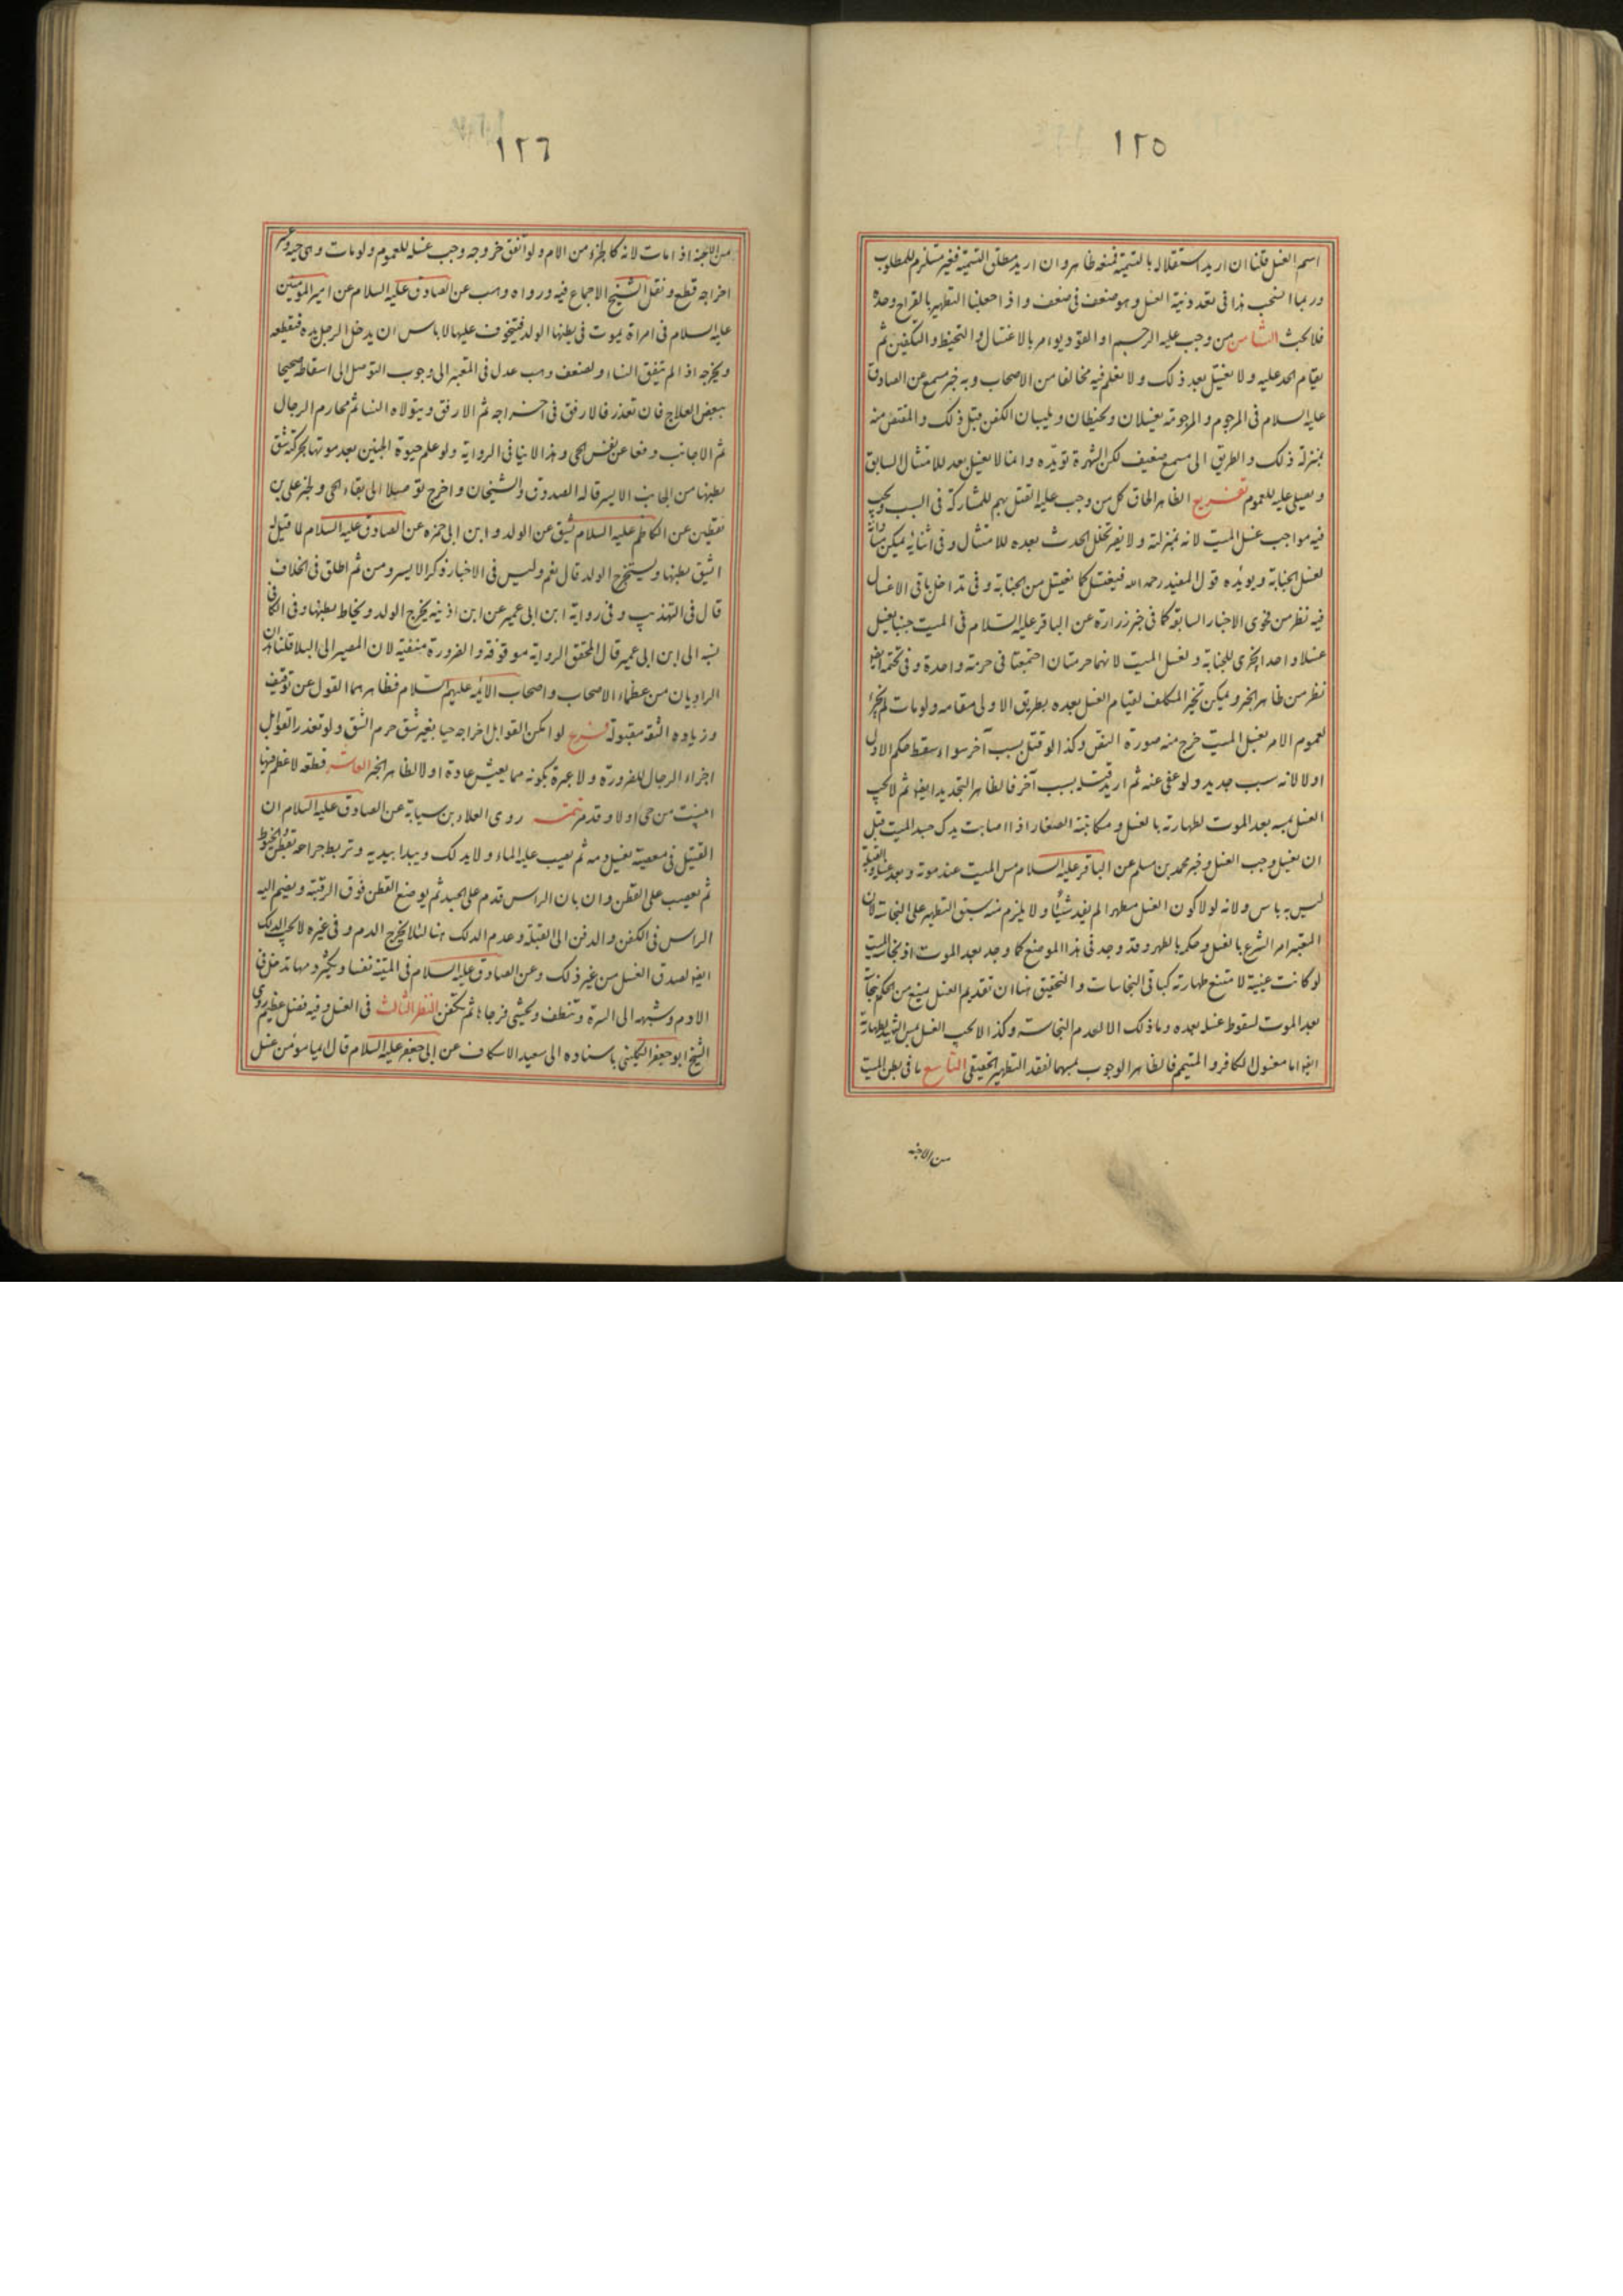 ١٢٥
اسم الغسل قلنا ان اريد استقلاله بالتسمية فمنعه ظاهر وان اريد مطلق التسمية فغير مستلزم للمطلوب
وربما انسحب هذا فى تعدد نية الغسل وهو ضعف فى ضعف واذا جعلنا التطهير بالقراح وحده
فلا بحث الثامن من وجب عليه الرجم او القود يومر بالاغتسال والتحنيط والتكفين ثم
يقام الحد عليه ولا يغسل بعد ذلك ولا نعلم فيه مخالفا من الاصحاب وبه خبر مسمع عن الصادق
عليه السلام فى المرجوم والمرجومة يغسلان ويحنطان ويلبسان الكفن قبل ذلك والمقتص منه
بمنزلة ذلك والطريق الى مسمع ضعيف لكن الشهرة تويده وانما لا يغسل بعد للامتثال السابق
ويصلى عليه للعموم تفريع الظاهر الحاق كل من وجب عليه القتل بهم للمشاركة فى السبب ويجب
فيه مواجب غسل الميت لانه بمنزلته ولا يضر تخلل الحدث بعده للامتثال وفى اثنائه يمكن مساواته
لغسل الجنابة ويويده قول المفيد رحمه الله فيغتسل كما يغتسل من الجنابة وفى تداخل باقى الاغسال
فيه نظر من فحوى الاخبار السابقة كما فى خبر زرارة عن الباقر عليه السلام فى الميت جنبا يغسل
غسلا واحدا يجزى للجنابة ولغسل الميت لانهما حرمتان اجتمعتا فى حرمة واحدة وفى تحتمه ايضا
نظر من ظاهر الخبر ويمكن تخير المكلف لقيام الغسل بعده بطريق الاولى مقامه ولو مات لم يجزء
لعموم الامر بغسل الميت خرج منه صورة النص وكذا لو قتل بسبب آخر سواء سقط حكم الاول
او لا لانه سبب جديد ولو عفى عنه ثم اريد قتله بسبب آخر فالظاهر التجديد ايضا ثم لا يجب
الغسل بمسه بعد الموت لطهارته بالغسل ومكاتبة الصفار اذا اصابت يدك جسد الميت قبل
ان يغسل وجب الغسل وخبر محمد بن مسلم عن الباقر عليه السلام مس الميت عند موته وبعد غسله والقبلة
ليس به باس ولانه لولا كون الغسل مطهرا لم يفد شيئا ولا يلزم منه سبق التطهير على النجاسة لان
المعتبر امر الشرع بالغسل وحكمه بالطهر وقد وجد فى هذا الموضع كما وجد بعد الموت اذ نجاسة الميت
لو كانت عينية لامتنع طهارته كباقى النجاسات والتحقيق هنا ان تقديم الغسل يمنع من الحكم بنجاسته
بعد الموت لسقوط غسله بعده وما ذلك الا لعدم النجاسة وكذا لا يجب الغسل بمس الشهيد لطهارته
ايضا اما مغسول الكافر والمتيمم فالظاهر الوجوب بمسهما لفقد التطهير الحقيقى التاسع ما فى بطن الميت
من الاجنة
١٢٦
من الاجنة اذا مات لانه كالجزء من الام ولو اتفق خروجه وجب غسله للعموم ولو مات وهى حية وعسر
اخراجه قطع ونقل الشيخ الاجماع فيه ورواه وهب عن الصادق عليه السلام عن امير المومنين
عليه السلام فى امراة يموت فى بطنها الولد فيتخوف عليها لا باس ان يدخل الرجل يده فيقطعه
ويخرجه اذا لم يتفق النساء ولضعف وهب عدل فى المعتبر الى وجوب التوصل الى اسقاطه صحيحا
ببعض العلاج فان تعذر فالارفق فى اخراجه ثم الارفق ويتولاه النسا ثم محارم الرجال
ثم الاجانب دفعا عن نفس الحى وهذا لا ينافى الرواية ولو علم حيوة الجنين بعد موتها بحركته شق
بطنها من الجانب الايسر قاله الصدوق والشيخان واخرج توصلا الى بقاء الحى ولخبر على بن
يقطين عن الكاظم عليه السلام يشق عن الولد وابن ابى حمزه عن الصادق عليه السلام لما قيل له
ايشق بطنها ويستخرج الولد قال نعم وليس فى الاخبار ذكر الايسر ومن ثم اطلق فى الخلاف
قال فى التهذيب وفى رواية ابن ابى عمير عن ابن اذينه يخرج الولد ويخاط بطنها وفى الكافى
نسبه الى ابن ابى عمير قال المحقق الرواية موقوفة والضرورة منتفية لان المصير الى البلا قلنا هذان
الراويان من عظماء الاصحاب واصحاب الائمه عليهم السلام فظاهرهما القول عن توقيف
وزياده الثقة مقبولة فرع لو امكن القوابل اخراجه حيا بغير شق حرم الشق ولو تعذر القوابل
اجزاء الرجال للضرورة ولا عبرة بكونه مما يعيش عادة اولا لظاهر الخبر العاشر قطعه لا عظم فيها
ابينت من حى اولا وقد مر تتمه روى العلاء بن سيابة عن الصادق عليه السلام ان
القتيل فى معصية يغسل دمه ثم يصب عليه الماء ولا يدلك ويبدا بيديه وتربط جراحه بقطن وحنوط
ثم يعصب على القطن وان بان الراس قدم على الجسد ثم يوضع القطن فوق الرقبة ويضم اليه
الراس فى الكفن والدفن الى القبلة وعدم الدلك هنا لئلا يخرج الدم وفى غيره لا يجب الدلك
ايضا لصدق الغسل من غير ذلك وعن الصادق عليه السلام فى الميتة نفسا ويكثر دمها تدخل فى
الادم وشبهه الى السرة وتنظف ويحشى فرجاها ثم تكفن النظر الثالث فى الغسل وفيه فضل عظيم روى
الشيخ ابو جعفر الكلينى باسناده الى سعيد الاسكاف عن ابى جعفر عليه السلام قال ايما مومن غسل